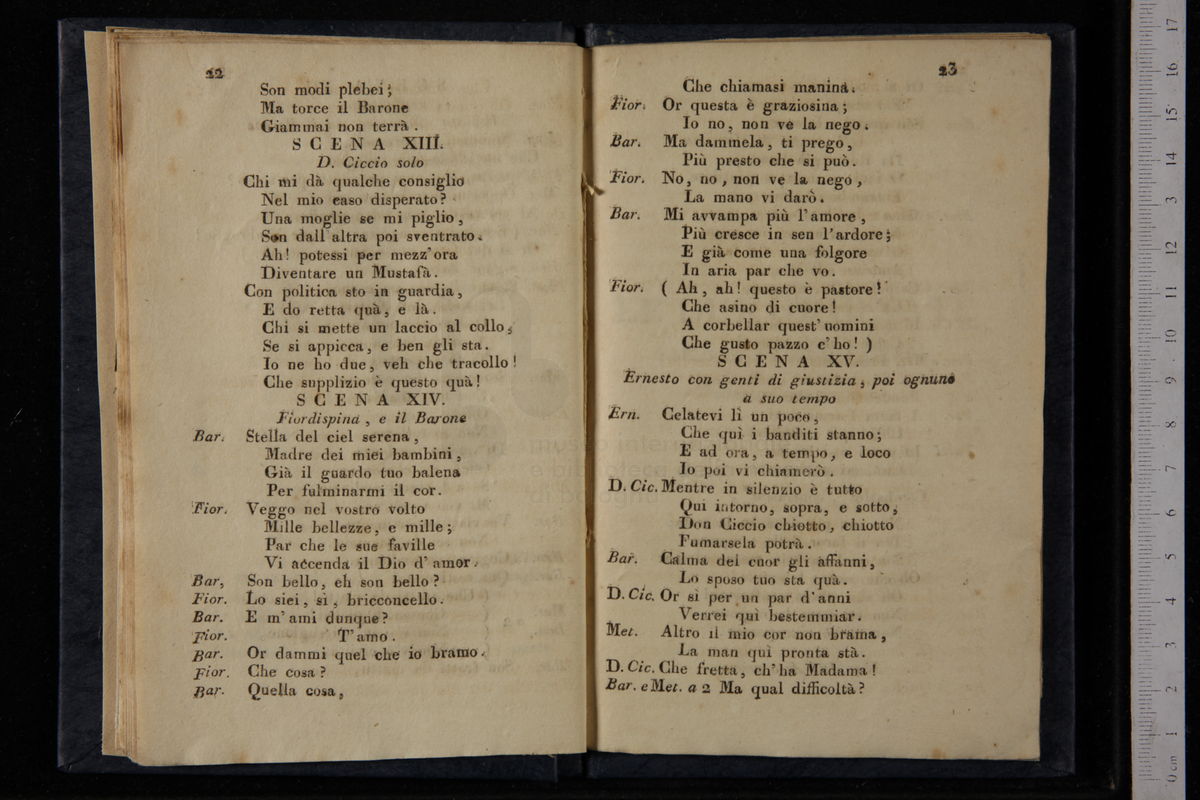 22
Son modi plebei;
Ma torce il Barone
Giammai non terrà.
SCENA XIII.
D. Ciccio solo
Chi mi dà qualche consiglio
Nel mio caso disperato?
Una moglie se mi piglio,
Son dall'altra poi sventrato.
Ah! potessi per mezz'ora
Diventare un Mustafà.
Con politica sto in guardia,
E do retta quà, e là.
Chi si mette un laccio al collo,
Se si appicca, e ben gli sta.
Io ne ho due, veh che tracollo!
Che supplizio è questo quà!
SCENA XIV.
Fiordispina, e il Barone
Bar. Stella del ciel serena,
Madre dei miei bambini,
Già il guardo tuo balena
Per fulminarmi il cor.
Fior. Veggo nel vostro volto
Mille bellezze, e mille;
Par che le sue faville
Vi accenda il Dio d'amor.
Bar, Son bello, eh son bello?
Fior. Lo siei, sì, bricconcello.
Bar. E m'ami dunque?
Fior. T'amo.
Bar. Or dammi quel che io bramo.
Fior. Che cosa?
Bar. Quella cosa,
23
Che chiamasi manina.
Fior. Or questa è graziosina;
Io no, non ve la nego.
Bar. Ma dammela, ti prego,
Più presto che si può.
Fior. No, no, non ve la nego,
La mano vi darò.
Bar. Mi avvampa più l'amore,
Più cresce in sen l'ardore;
E già come una folgore
In aria par che vo.
Fior. (Ah, ah! questo è pastore!
Che asino di cuore!
A corbellar quest'uomini
Che gusto pazzo c'ho!)
SCENA XV.
Ernesto con genti di giustizia, poi ognuno
a suo tempo
Ern. Celatevi lì un poco,
Che quì i banditi stanno;
E ad ora, a tempo, e loco
Io poi vi chiamerò.
D. Cic. Mentre in silenzio è tutto
Qui intorno, sopra, e sotto,
Don Ciccio chiotto, chiotto
Fumarsela potrà.
Bar. Calma dei cuor gli affanni,
Lo sposo tuo sta quà.
D. Cic. Or sì per un par d'anni
Verrei quì bestemmiar.
Met. Altro il mio cor non brama,
La man quì pronta stà.
D. Cic. Che fretta, ch'ha Madama!
Bar. e Met. a 2 Ma qual difficoltà?
0 cm 1 2 3 4 5 6 7 8 9 10 11 12 13 14 15 16 17